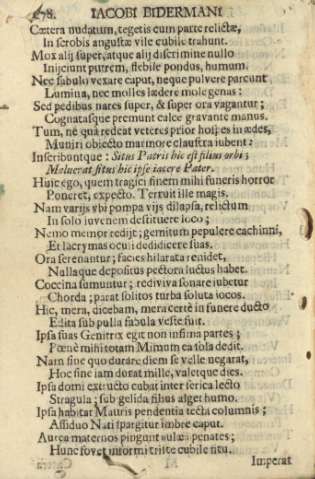 278. IACOBI BIDERMANI
Cætera nudatum, tegetis cum parte relictæ,
In scrobis angustæ vile cubile trahunt.
Mox alij super, atque alij discrimine nullo
Injiciunt putrem, flebile pondus, humum.
Nec sabulo vexare caput, neque pulvere parcunt
Lumina, nec molles lædere mole genas:
Sed pedibus nares super, & super ora vagantur;
Cognatasque premunt calce gravante manus.
Tum, ne quà redeat veteres prior hospes in ædes,
Muniri objecto marmore claustra iubent:
Inscribuntque: Situs Patris hic est filius orbi;
Maluerat situs hic ipse iacere Pater.
Huic ego, quem tragici finem mihi funeris horror
Poneret, expecto. Terruit ille magis.
Nam varijs vbi pompa vijs dilapsa, relictum
In solo iuvenem destituere loco;
Nemo memor redijt; gemitum pepulere cachinni,
Et lacrymas oculi dedidicere suas.
Ora serenantur; facies hilarata renidet,
Nullaque depositus pectora luctus habet.
Coccina sumuntur; rediviva sonare iubetur
Chorda; parat solitos turba soluta iocos.
Hic, mera, dicebam, mera certè in funere ducto
Edita sub pulla fabula veste fuit.
Ipsa suas Genitrix egit non infima partes;
Pœnè mihi totam Mimum ea sola dedit.
Nam sine quo durare diem se velle negarat,
Hoc sine iam durat mille, valetque dies.
Ipsa domi extructo cubat inter serica lecto
Stragula; sub gelida filius alget humo.
Ipsa habitat Mauris pendentia tecta columnis;
Assiduo Nati spargitur imbre caput.
Aurea maternos pingunt aulæa penates;
Hunc fovet informi triste cubile situ.
Imperat